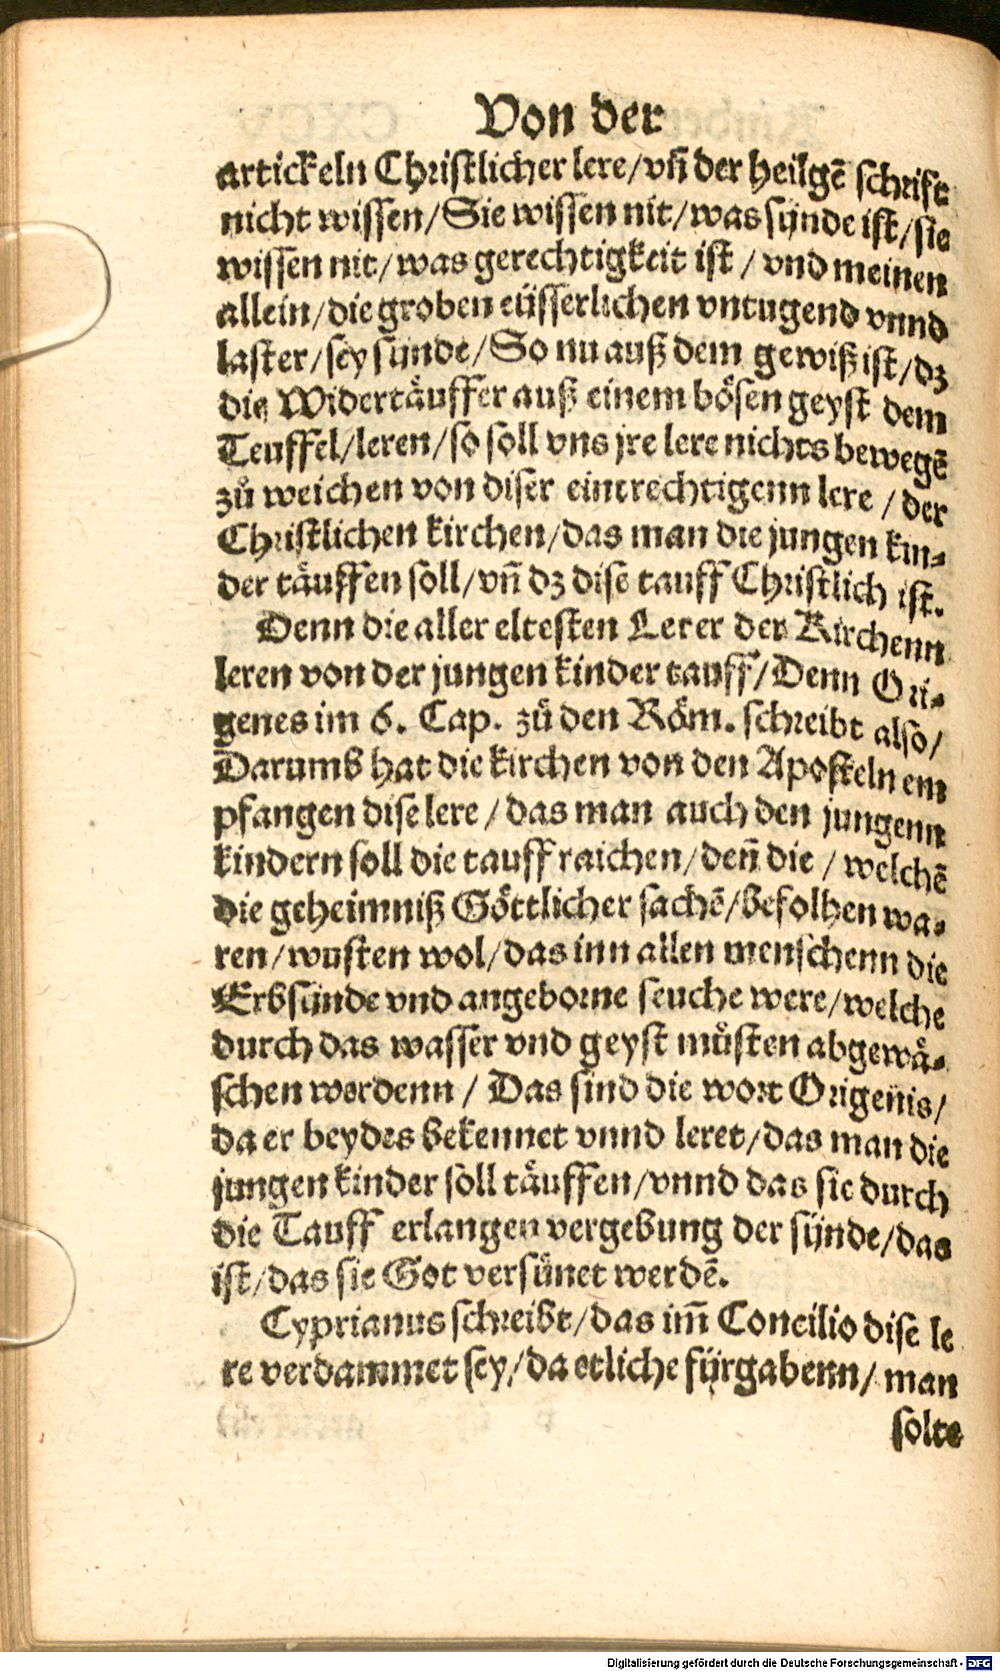 Von der
artickeln Christlicher lere/vñ der heilgẽ schrift
nicht wissen/Sie wissen nit/was sünde ist/sie
wissen nit/was gerechtigkeit ist / vnd meinen
allein/die groben eüsserlichen vntugend vnnd
laster/sey sünde/So nu auß dem gewiß ist/dz
die Widertäuffer auß einem bösen geyst dem
Teuffel/leren/so soll vns jre lere nichts bewegẽ
zů weichen von diser eintrechtigenn lere / der
Christlichen kirchen/das man die jungen kin-
der täuffen soll/vñ dz dise tauff Christlich ist.
Denn die aller eltesten Lerer der Kirchenn
leren von der jungen kinder tauff/Denn Ori-
genes im 6. Cap. zů den Röm. schreibt also/
Darumb hat die kirchen von den Aposteln em
pfangen dise lere / das man auch den jungenn
kindern soll die tauff raichen/deñ die / welchẽ
die geheimniß Göttlicher sachẽ/befolhen wa-
ren/wusten wol/das inn allen menschenn die
Erbsünde vnd angeborne seuche were/welche
durch das wasser vnd geyst müsten abgewä-
schen werdenn / Das sind die wort Origenis/
da er beydes bekennet vnnd leret/das man die
jungen kinder soll täuffen/vnnd das sie durch
die Tauff erlangen vergebung der sünde/das
ist/das sie Got versünet werdẽ.
Cyprianus schreibt/das im̃ Concilio dise le
re verdammet sey/da etliche fürgabenn/ man
solte
Digitalisierung gefördert durch die Deutsche Forschungsgemeinschaft - DFG